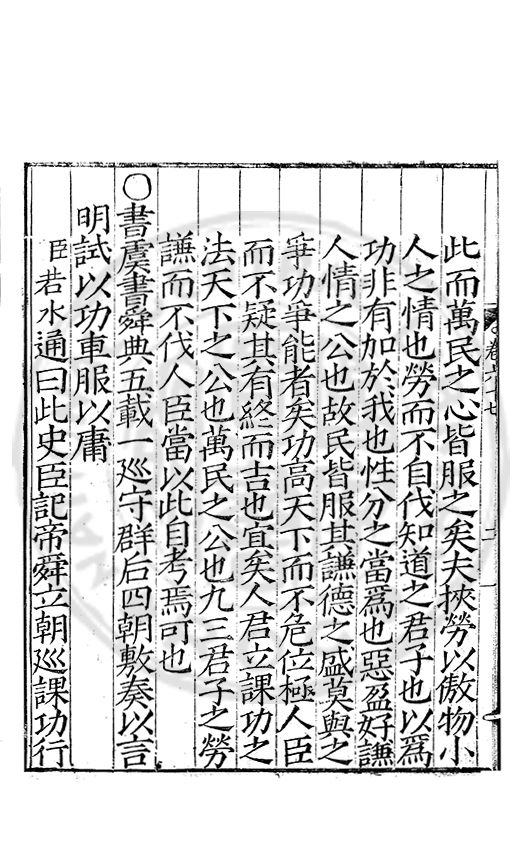 此而萬民之心皆服之矣夫挾勞以傲物小
人之情也勞而不自伐知道之君子也以爲
功非有加於我也性分之當爲也惡盈好謙
人情之公也故民皆服其謙德之盛莫與之
爭功爭能者矣功高天下而不危位極人臣
而不疑其有終而吉也宜矣人君立課功之
法天下之公也萬民之公也九三君子之勞
謙而不伐人臣當以此自考焉可也
○書虞書舜典五載一巡守群后四朝敷奏以言
明試以功車服以庸
臣若水通曰此史臣記帝舜立朝巡課功行